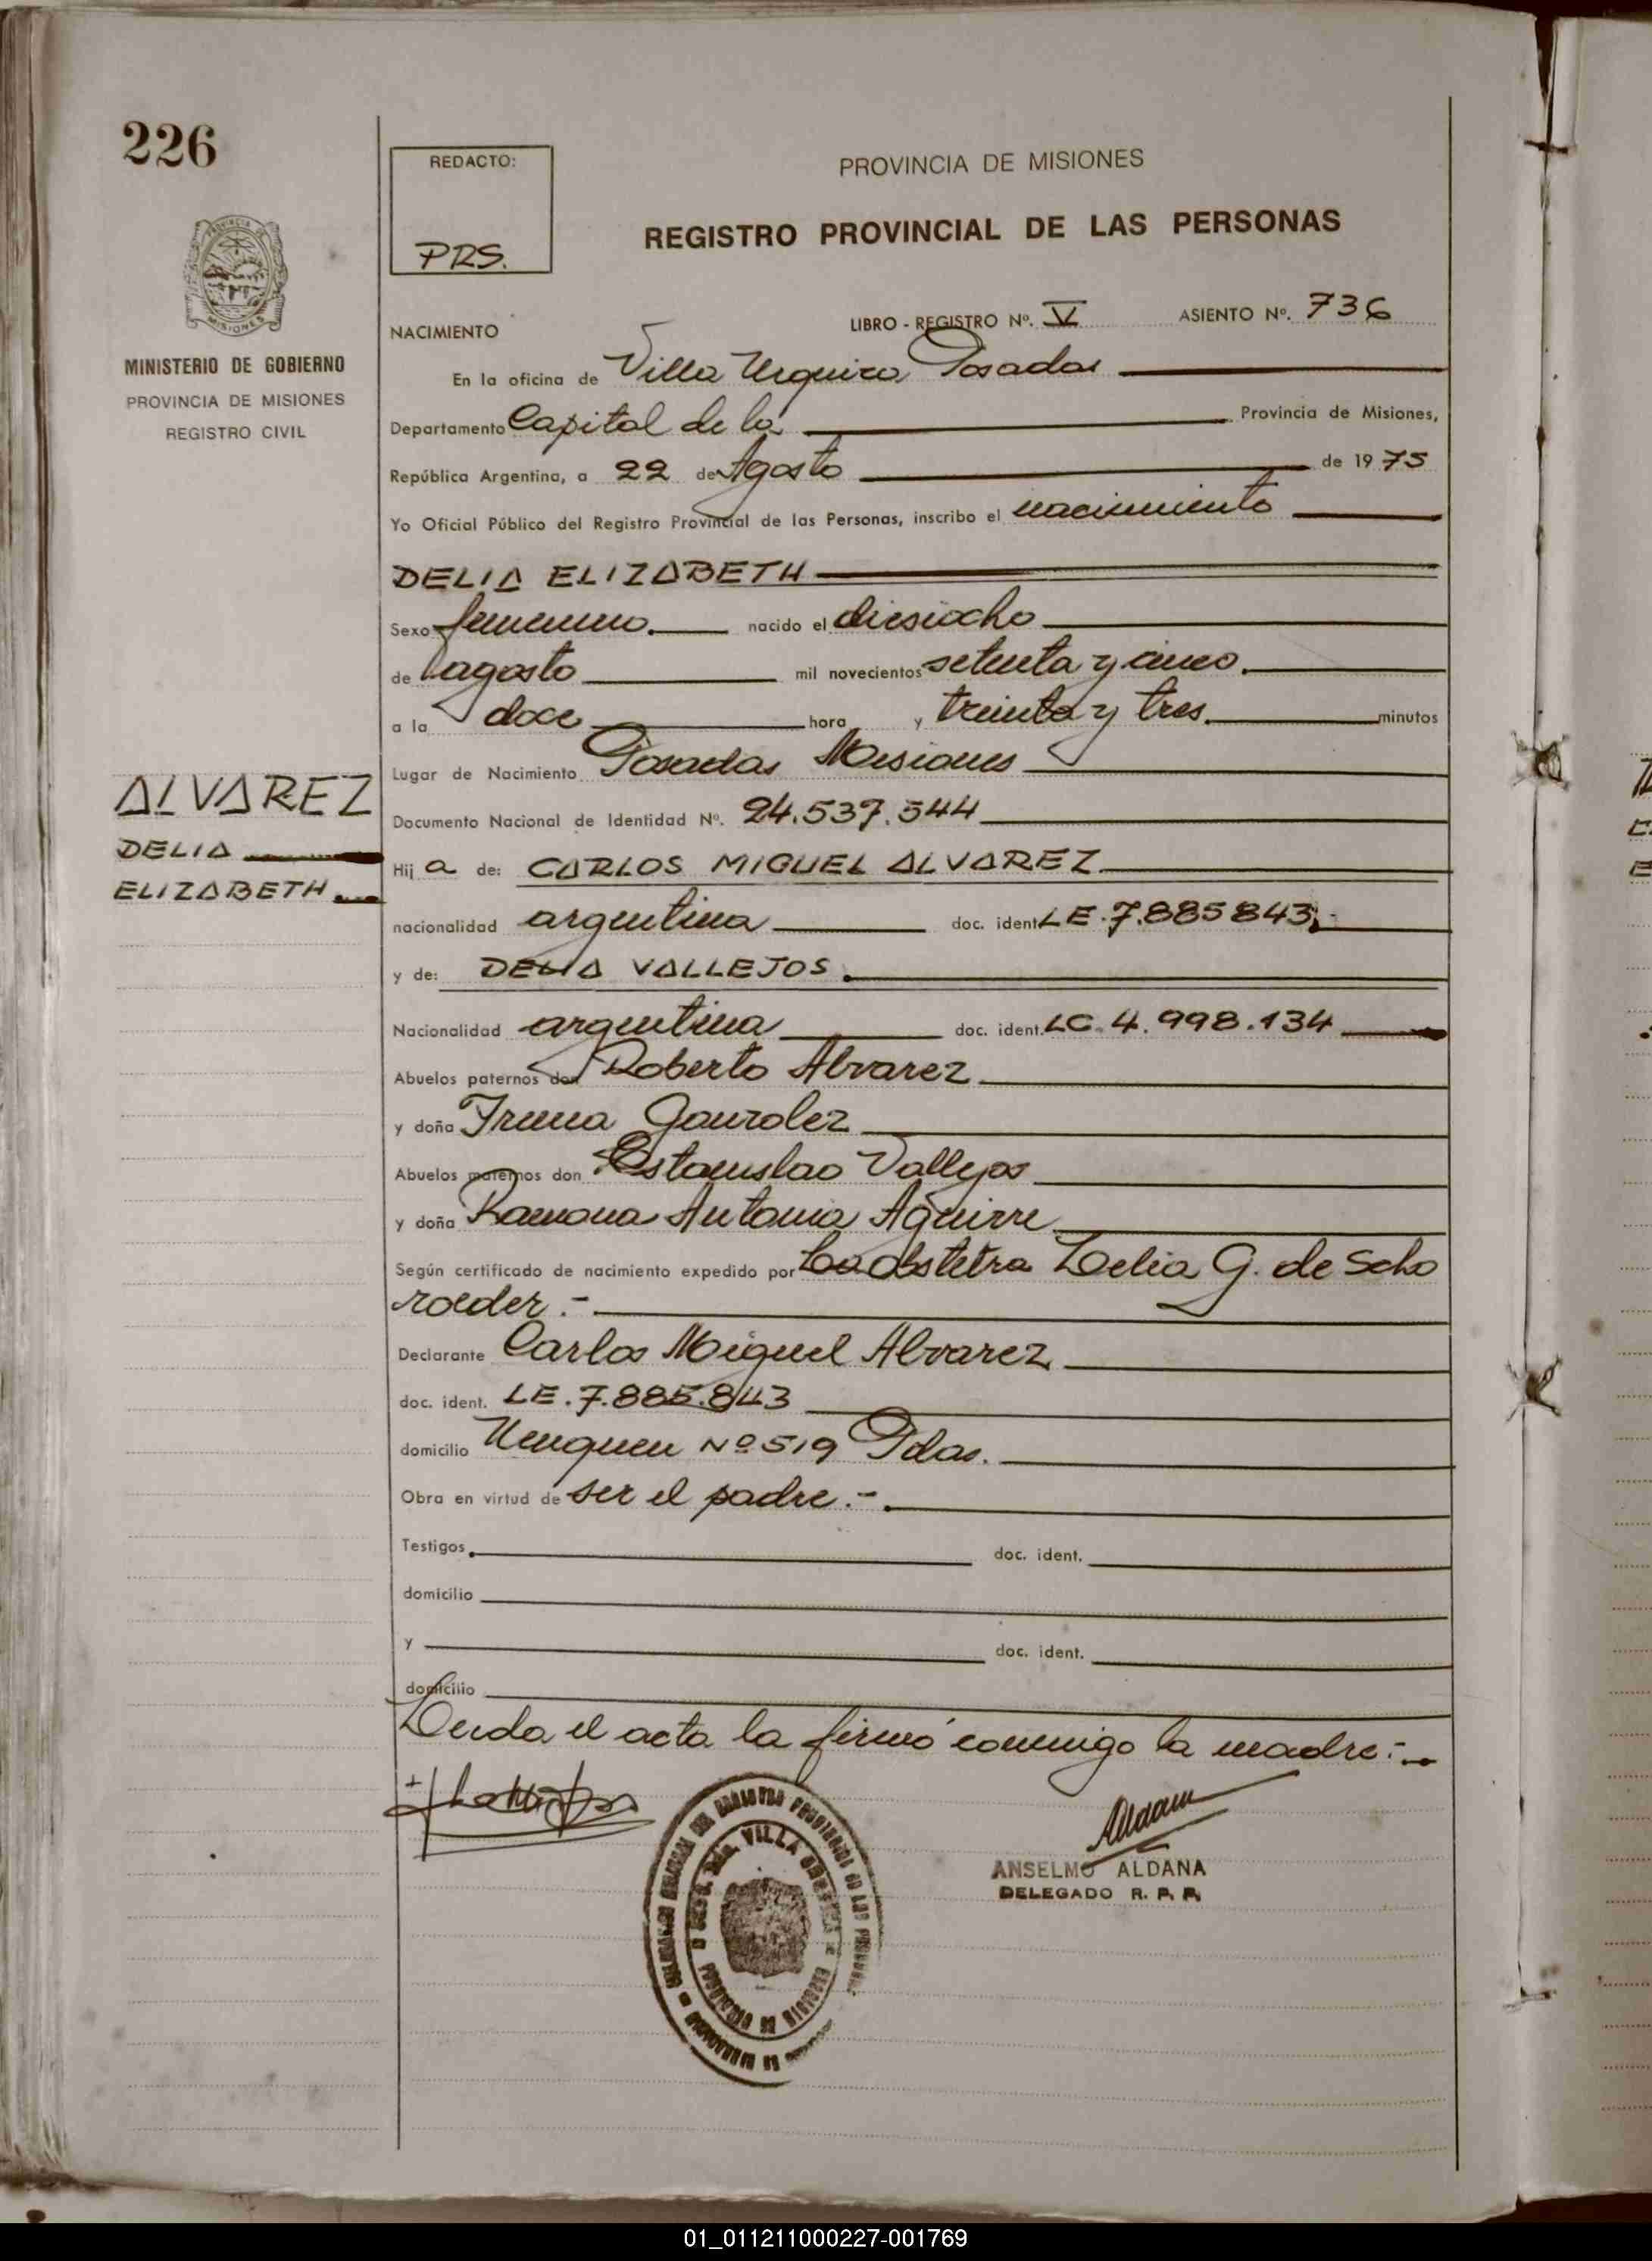 226
REDACTO:
PRS.
PROVINCIA DE MISIONES
REGISTRO PROVINCIAL DE LAS PERSONAS
MISIONES
MINISTERIO DE GOBIERNO
PROVINCIA DE MISIONES
REGISTRO CIVIL
NACIMIENTO
LIBRO - REGISTRO Nº. V ASIENTO Nº. 736
En la oficina de Villa Urquiza Posadas
Departamento Capital de la Provincia de Misiones,
República Argentina, a 22 de Agosto de 1975
Yo Oficial Público del Registro Provincial de las Personas, inscribo el nacimiento
DELIA ELIZABETH
Sexo femenino. nacido el diesiocho
de agosto mil novecientos setenta y cinco.
a la doce hora y treinta y tres. minutos
Lugar de Nacimiento Posadas Misiones
ALVAREZ
DELIA
ELIZABETH.
Documento Nacional de Identidad Nº. 24.537.544
Hij a de: CARLOS MIGUEL ALVAREZ
nacionalidad argentina doc. ident. LE.7.885843,-
y de: DELIA VALLEJOS.
Nacionalidad argentina doc. ident. LC.4.998.134
Abuelos paternos don Roberto Alvarez
y doña Irena Gonzalez
Abuelos maternos don Estanislao Vallejos
y doña Ramona Antonia Aguirre
Según certificado de nacimiento expedido por La obstetra Delia G. de Scho
roeder.-
Declarante Carlos Miguel Alvarez
doc. ident. LE.7.885.843
domicilio Neuquen Nº 519 Pdas.
Obra en virtud de ser el padre.-
Testigos doc. ident.
domicilio
y doc. ident.
domicilio
Leida el acta la firmó conmigo la madre:-
VILLA
ANSELMO ALDANA
DELEGADO R. P. P.
01_011211000227-001769